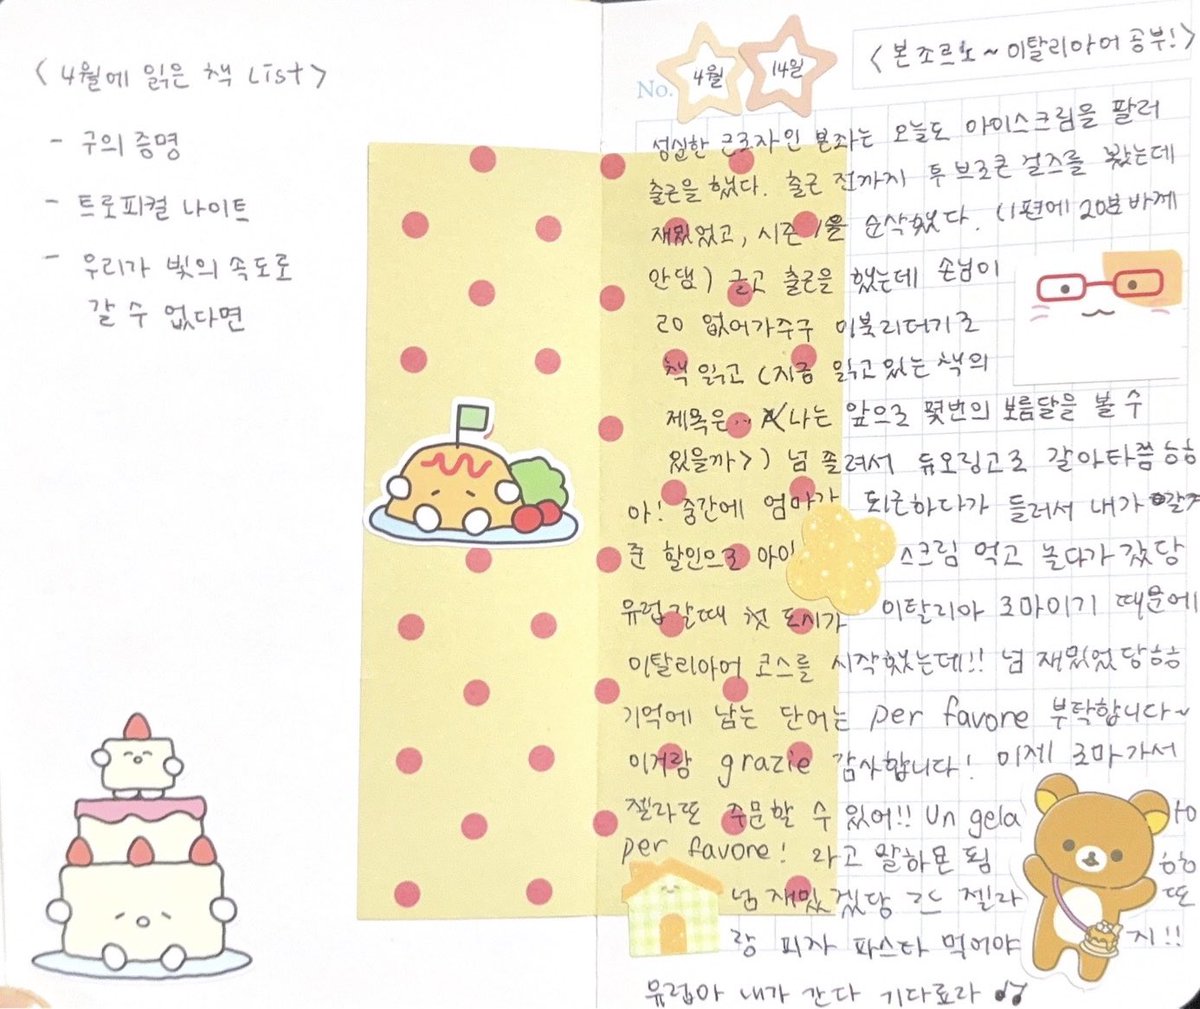 <4월에 읽은 책 List>
- 구의 증명
- 트로피컬 나이트
- 우리가 빛의 속도로
갈 수 없다면
No. 4월 14일
<본조르노~ 이탈리아어 공부!>
성실한 근로자인 본좌는 오늘도 아이스크림을 팔러
출근을 했다. 출근 전까지 투 브로큰 걸즈를 봤는데
재밌었고, 시즌 1을 순삭했다. (1편에 20분바께
안댐) 글고 출근을 했는데 손님이
라 없어가주구 이북리더기로
책 읽고 (지금 읽고있는 책의
제목은... <나는 앞으로 몇번의 보름달을 볼 수
있을까>) 넘 졸려서 듀오링고로 갈아타쯤 ㅎㅎ
아! 중간에 엄마가 퇴근하다가 들러서 내가
준 할인으로 아이스크림 먹고 놀다가 갔당
유럽갈때 첫 도시가 이탈리아 로마이기 때문에
이탈리아어 코스를 시작했는데!! 넘 재밌었당ㅎㅎ
기억에 남는 단어는 per favore 부탁합니다~
이거랑 grazie 감사합니다! 이제 로마가서
젤라또 주문할 수 있어!! Un gelato
per favore! 라고 말하믄 됨 ㅎㅎ
넘 재밌겠당 ㄹㅇ 젤라또
랑 피자 파스타 먹어야지!!
유럽아 내가 간다 기다료라 ♪♫